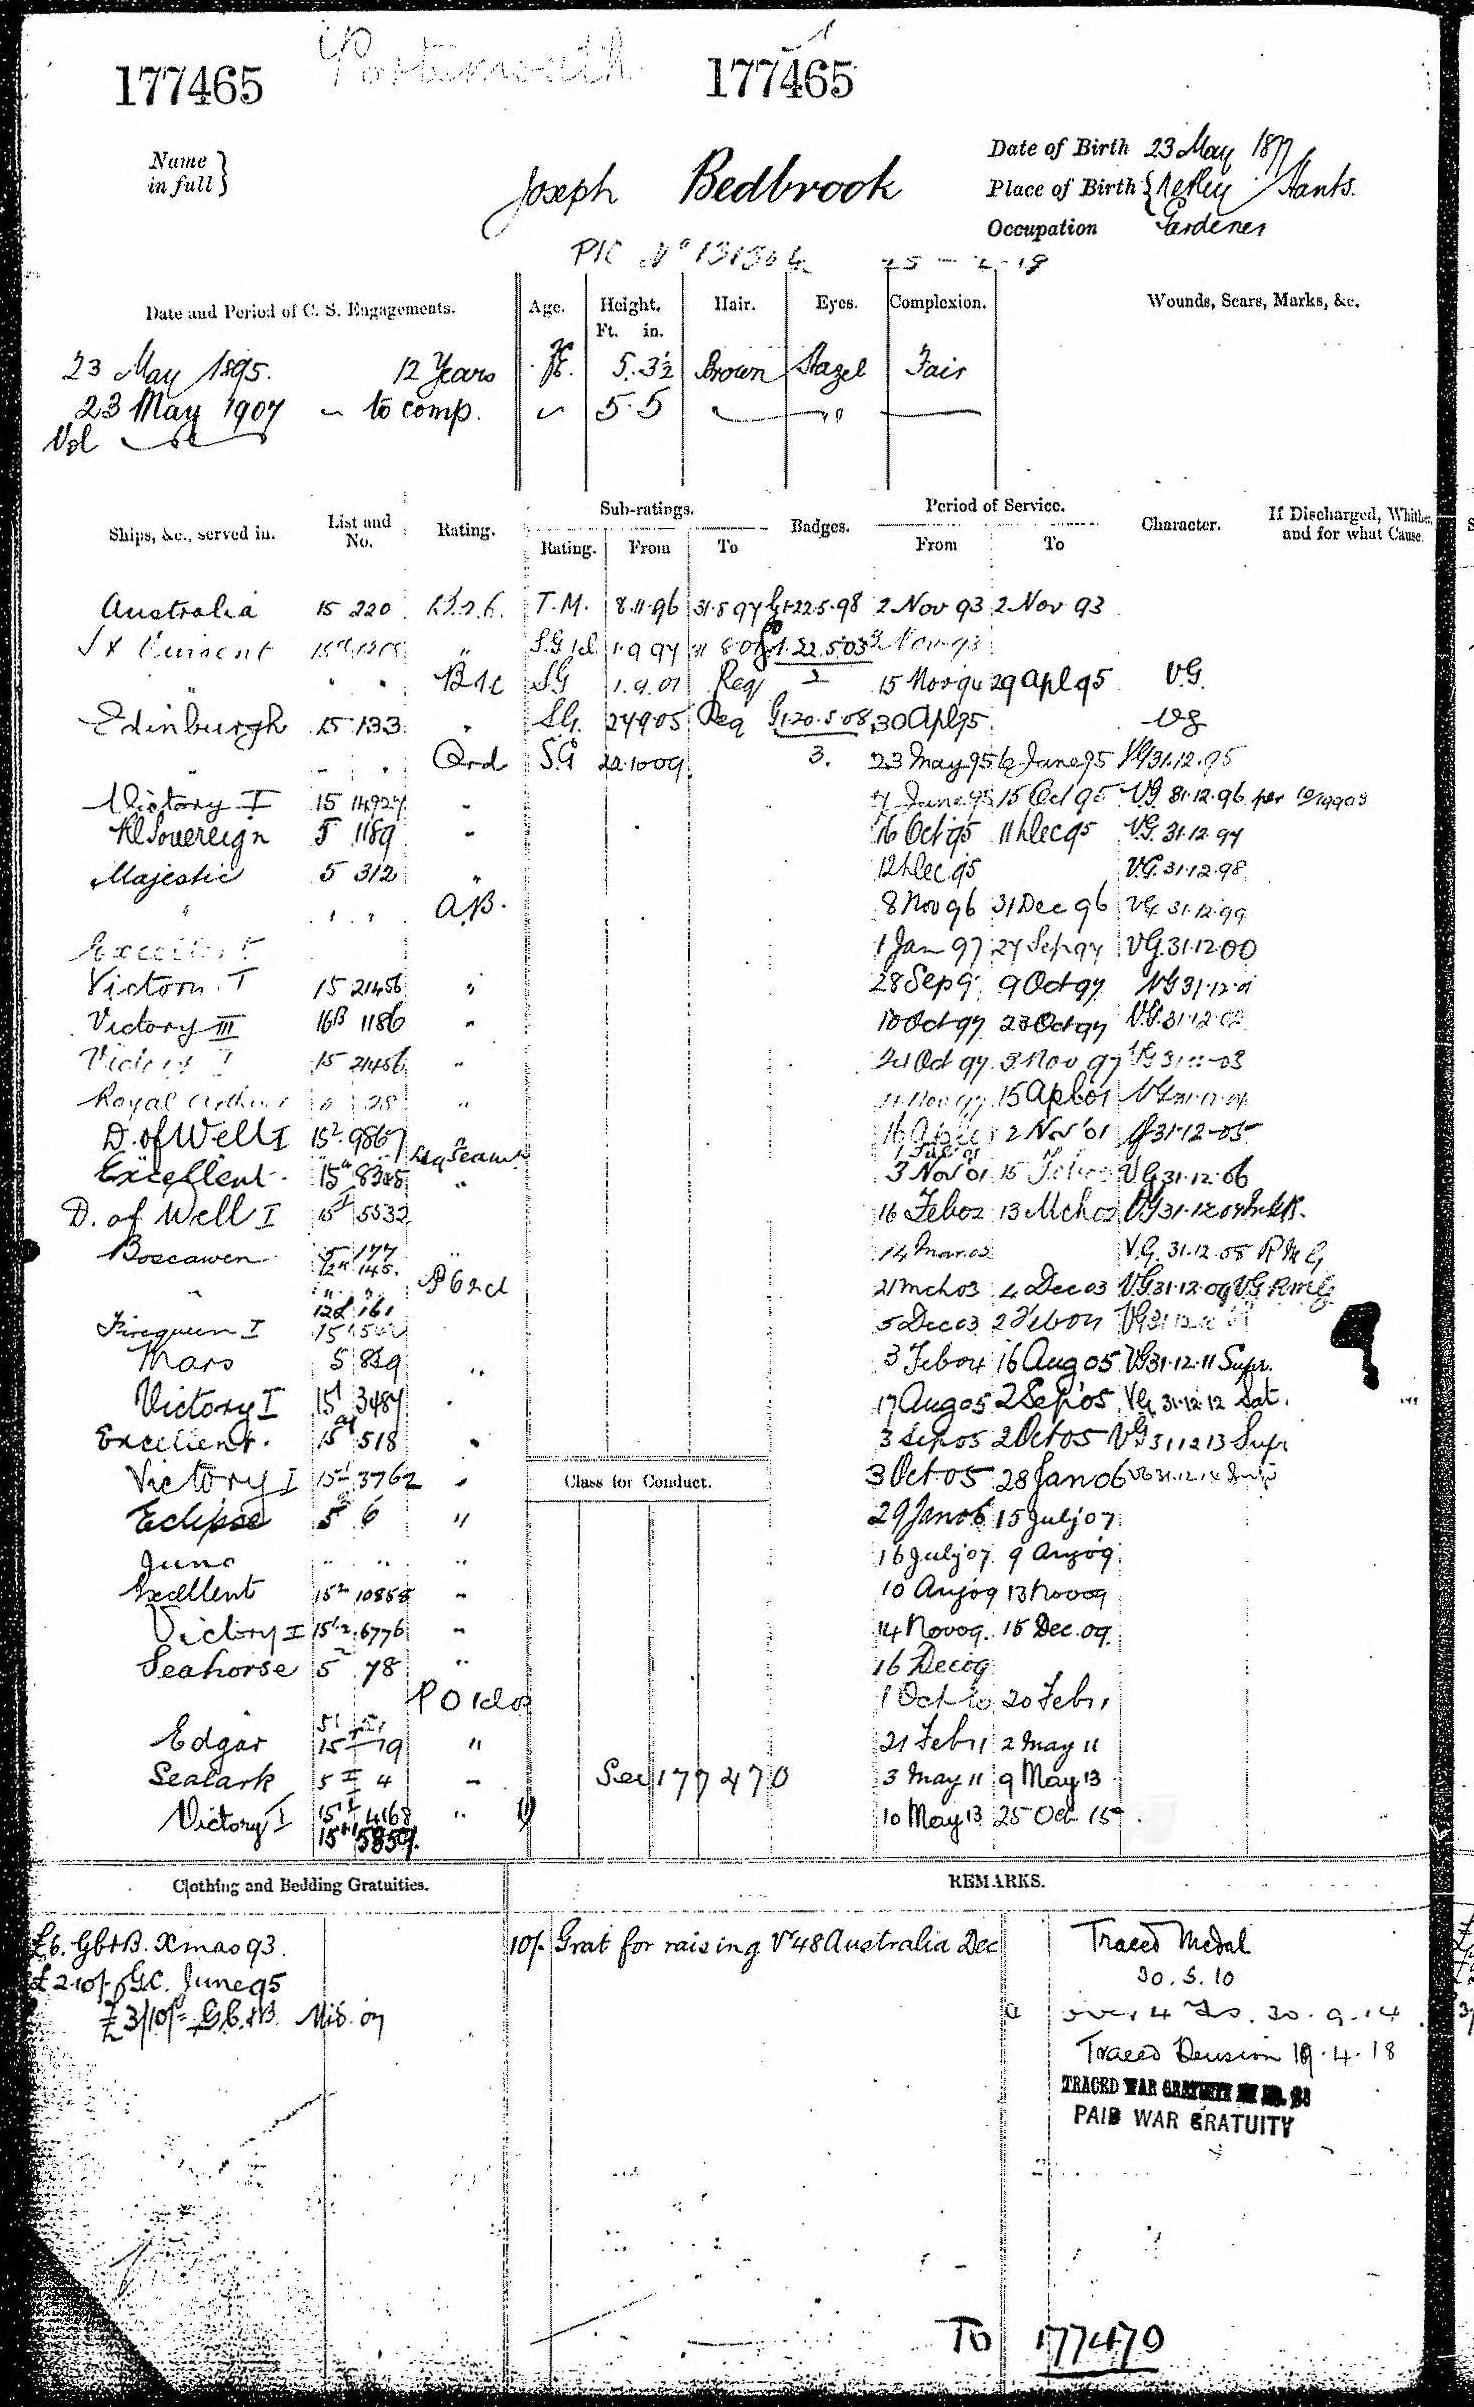 Portsmouth
177465 177465
Name in full } Joseph Bedbrook
Date of Birth 23 May 1877
Place of Birth { Netley Hants.
Occupation Gardener
Date and Period of C. S. Engagements. Age. Height. Ft. in. Hair. Eyes. Complexion. Wounds, Scars, Marks, &c.
23 May 1895. 12 Years 5.3½ Brown Hazel Fair
23 May 1907 to comp. 5.5 "
Ships, &c., served in. List and No. Rating. Sub-ratings. Badges. Period of Service. Character. If Discharged, Whither, and for what Cause.
Rating. From To From To
Australia 15 220 T.M. 8.11.96 31.8.97 G1.22.5.98 2 Nov 93 2 Nov 93
St Vincent " S.G 1.9.97 1.22.5.03 3 Nov 93
" " B1c SG 1.9.01 Req 2 15 Nov 94 29 Apl 95 V.G.
Edinburgh 15 133 " S.G. 24.9.05 Req G1.20.5.08 30 Apl 95 VG
" " " Ord S.G 22.10.09 3. 23 May 95 6 June 95 VG 31.12.95
Victory I 15 14927 " 7 June 95 15 Oct 95 VG 31.12.96 per
Rl Sovereign 5 1189 " 16 Oct 95 11 Dec 95 V.G. 31.12.97
Majestic 5 312 " 12 Dec 95 V.G. 31.12.98
" " " A.B. 8 Nov 96 31 Dec 96 VG 31.12.99
Excellent 1 Jan 97 27 Sep 97 VG.31.12.00
Victory I 15 21456 " 28 Sep 97 9 Oct 97 VG 31.12.01
Victory III 16B 1186 " 10 Oct 97 23 Oct 97 V.G. 31.12.02
Victory I 15 21456 " 24 Oct 97 3 Nov 97 VG 31.12.03
Royal Arthur 28 " 4 Nov 97 15 Apl 01 VG 31.12.04
D. of Well I 15² 9867 " 16 Apl 01 2 Nov 01 31.12.05
Ldg Seam 1 Jul 01
Excellent. 15 8325 " 3 Nov 01 15 Feb 02 VG 31.12.06
D. of Well I 15 5532 16 Feb 02 13 Mch 02 VG 31.12.07
Boscawen 5 177 " 14 Mar 02 V.G. 31.12.08 R M G
12 145.
" PO 2cl 21 Mch 03 4 Dec 03 VG 31.12.09 VG RMG
12 161
Firequeen I 15 5 Dec 03 2 Feb 04 VG 31.12.10
Mars 5 839 " 3 Feb 04 16 Aug 05 VG 31.12.11 Supr.
Victory I 15 3487 " 17 Aug 05 2 Sep 05 VG 31.12.12 Sat.
Excellent. 15 518 " 3 Sep 05 2 Oct 05 VG 31.12.13 Supr
Victory I 15 3762 " Class for Conduct. 3 Oct 05 28 Jan 06 VG 31.12.14
Eclipse 5 6 " 29 Jan 06 15 July 07
Juno " " " 16 July 07 9 Aug 09
Excellent 15² 10858 " 10 Aug 09 13 Nov 09
Victory I 15.2 6776 " 14 Nov 09. 15 Dec. 09
Seahorse 5 78 " 16 Dec 09
P O 1cl 1 Oct 10 20 Feb 11
Edgar 15 19 " 21 Feb 11 2 May 11
Sealark 5 4 " See 177470 3 May 11 9 May 13
Victory I 15 4168 " 10 May 13 25 Oct 15
15 5859
Clothing and Bedding Gratuities. REMARKS.
£6. G C & B. Xmas 93. 10/- Grat for raising V 48 Australia Dec Traced Medal
£2.10/- GC. June 95 30.5.10
£3/10/- G.C. & B. Mis. 07 over 4 30.9.14
Traced Pension 19.4.18
TRACED WAR GRATUITY
PAID WAR GRATUITY
To 177470